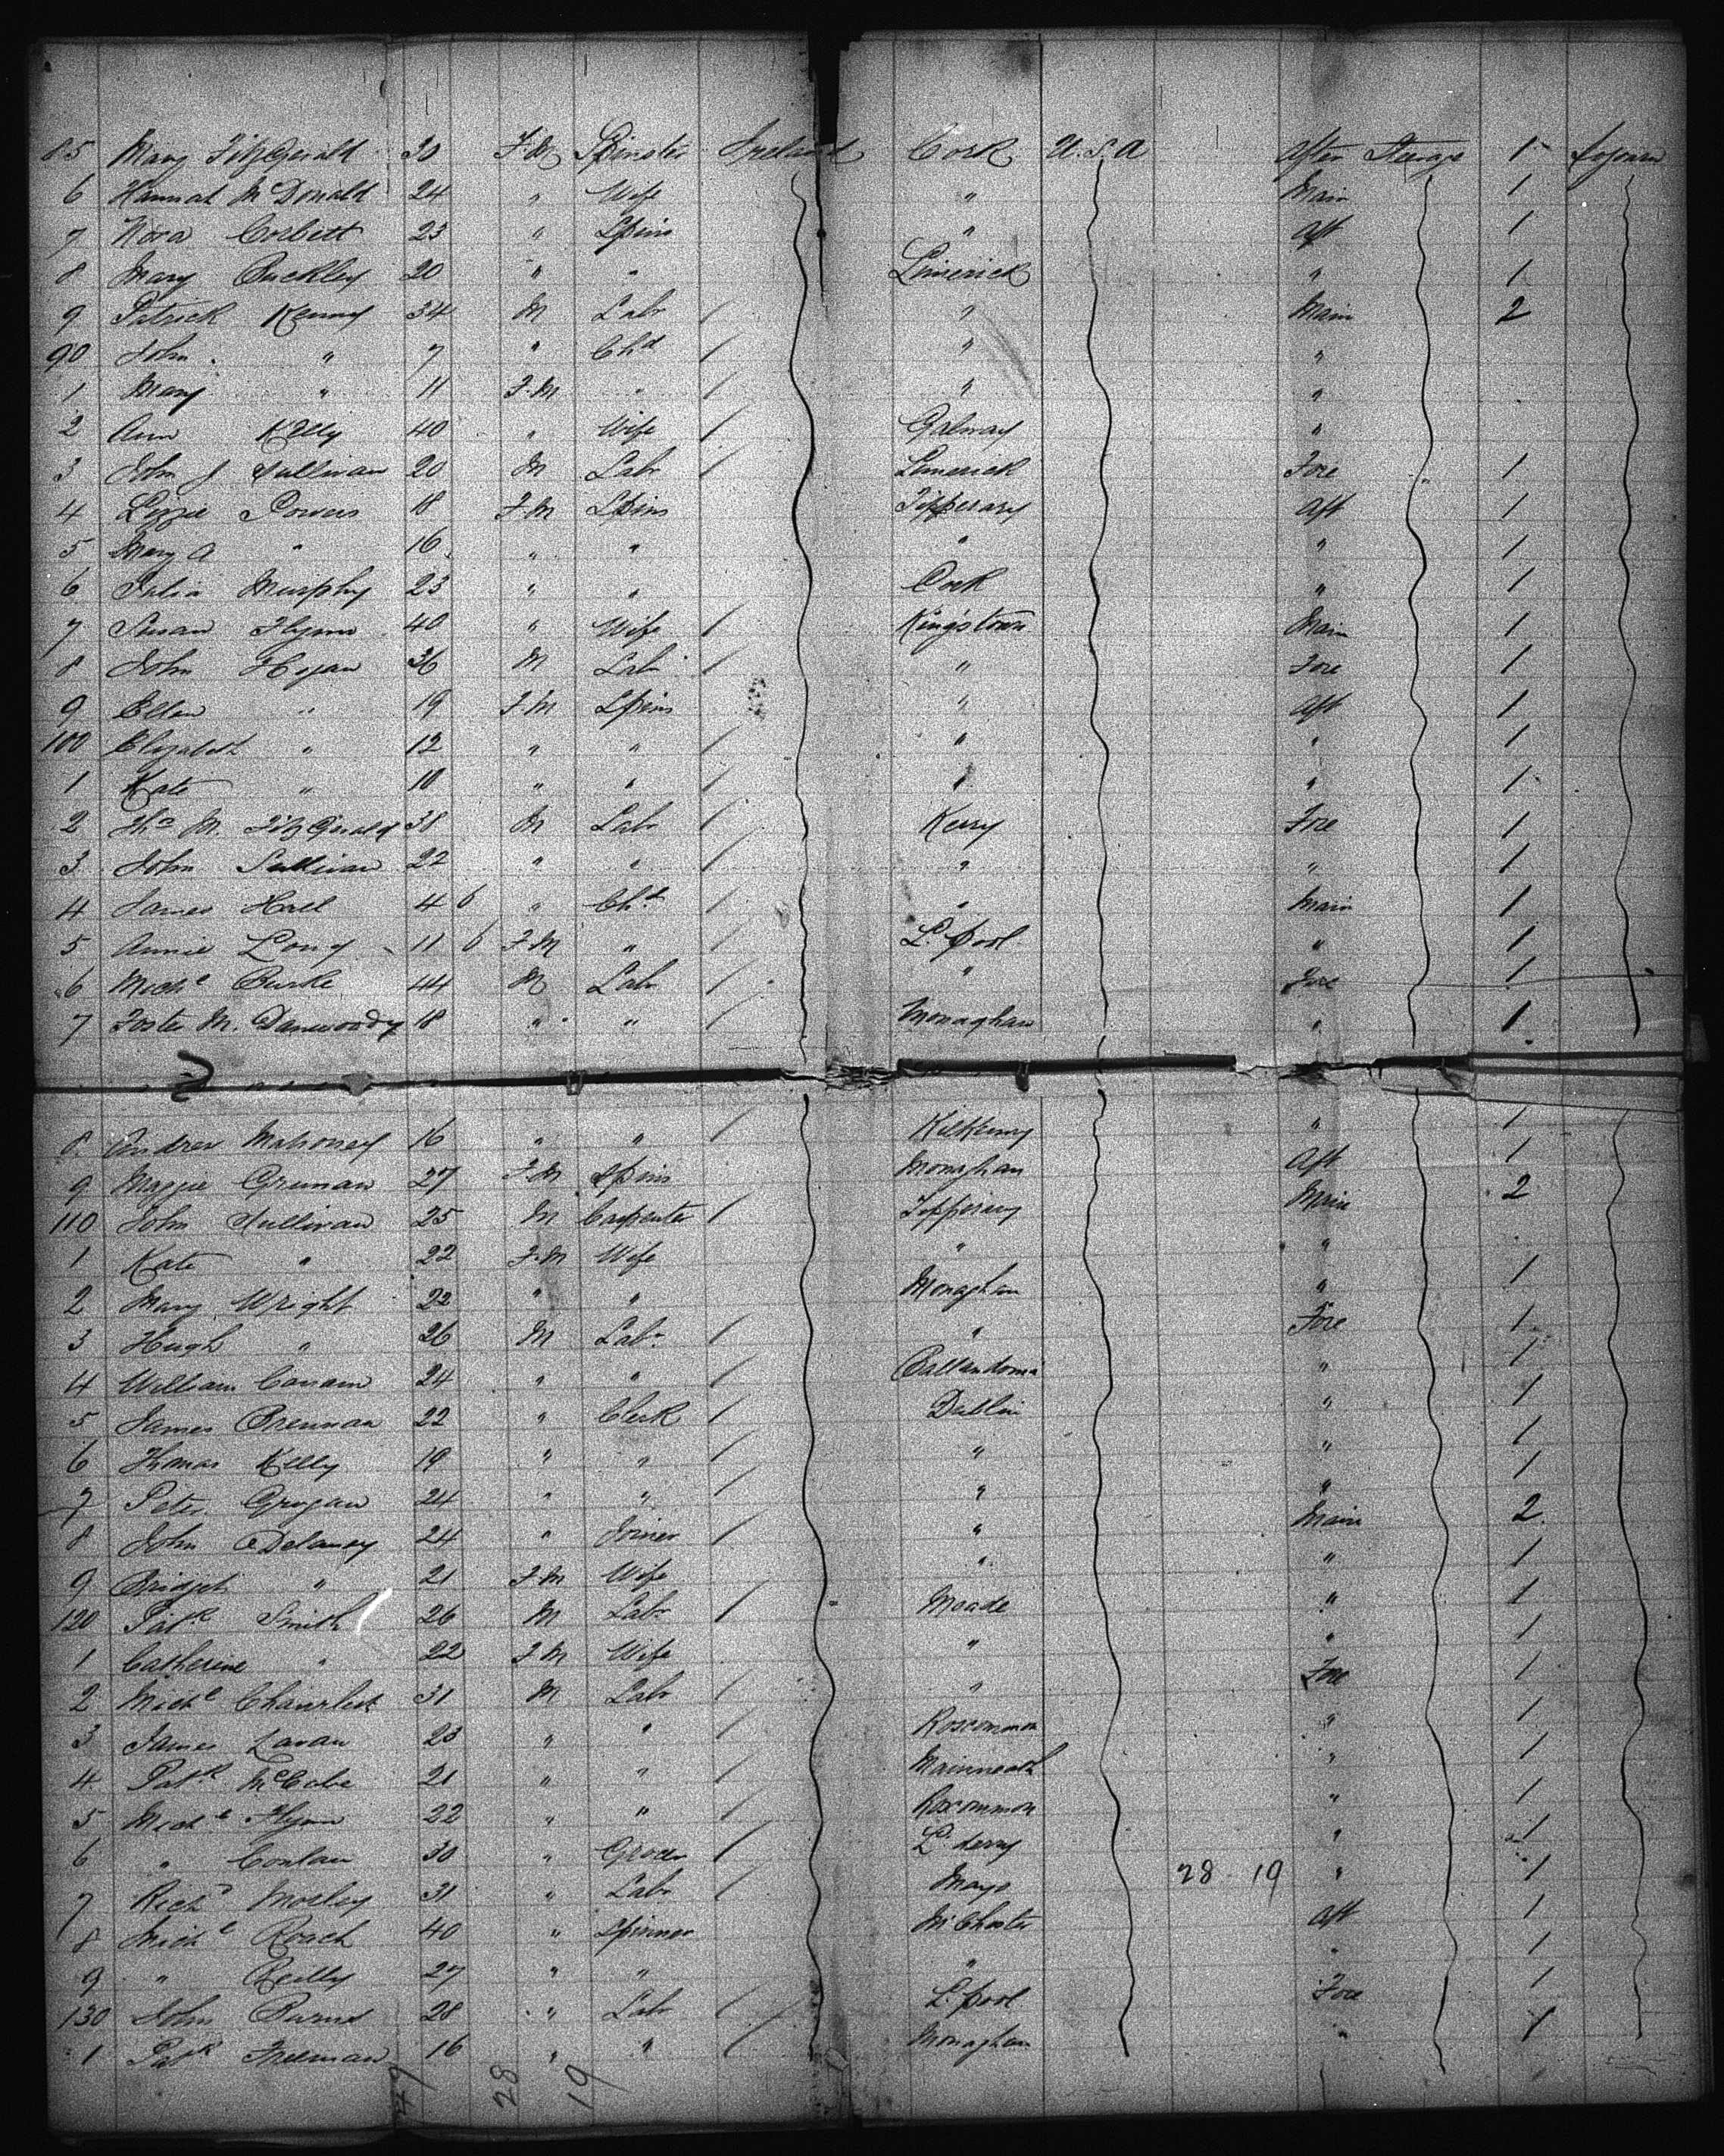 85 Mary FitzGerald 30 F.M Spinster Ireland Cork U.S.A After Steerage 1 Sojourn
6 Hannah McDonald 24 " Wife " Main 1
7 Nora Corbett 23 " Spins " Aft 1
8 Mary Buckley 20 " " Limerick " 1
9 Patrick Kenny 34 M Labr / " Main 2
90 John " 7 " Chd / " "
1 Mary " 11 F.M " / " "
2 Ann Kelly 40 " Wife / Galway "
3 John J Sullivan 20 M Labr / Limerick Fore 1
4 Lizzie Powers 18 F.M Spins Tipperary Aft 1
5 Mary A " 16 " " " " 1
6 Julia Murphy 23 " " Cork " 1
7 Susan Flynn 40 " Wife / Kingstown Main 1
8 John Hogan 36 M Labr / " Fore 1
9 Ellen " 19 F.M Spins " Aft 1
100 Elizabeth " 12 " " / " " 1
1 Kate " 10 " " / " " 1
2 Thos M. FitzGerald 38 M Labr / Kerry Fore 1
3 John Sullivan 22 " " / " " 1
4 James Hall 4 6 " Chd / " Main 1
5 Annie Long 11 6 F.M " / L.pool " 1
6 Michl Burke 44 M Labr / " Fore 1
7 Foster M. Dunwoody 18 " " / Monaghan " 1
8 Andrew Mahoney 16 " " / Kilkenny " 1
9 Maggie Greenan 27 F.M Spins Monaghan Aft 1
110 John Sullivan 25 M Carpenter / Tipperary Main 2
1 Kate " 22 F.M Wife " "
2 Mary Wright 22 " " Monaghan " 1
3 Hugh " 26 M Labr / " Fore 1
4 William 24 " " / " 1
5 James Brennan 22 " Clerk / Dublin " 1
6 Thomas Kelly 19 " " / " " 1
7 Peter Grogan 24 " " / " " 1
8 John Delaney 24 " Joiner / " Main 2
9 Bridget " 21 F.M Wife " " 1
120 Patk Smith 26 M Labr / Meade " 1
1 Catherine " 22 F.M Wife " " 1
2 Michl 31 M Labr / " Fore 1
3 James Lavan 23 " " / Roscommon " 1
4 Patk McCabe 21 " " / " 1
5 Michl Flynn 22 " " / Roscommon " 1
6 " Conlan 30 " Grocer / L.derry " 1
7 Richd Morley 31 " Labr / Mayo 28 19 " 1
8 Michl Roach 40 " Spinner M.Chester Aft 1
9 " Reilly 27 " " " " 1
130 John Burns 28 " Labr / L.pool Fore 1
1 Patk Freeman 16 " " / Monaghan " 1
28 19